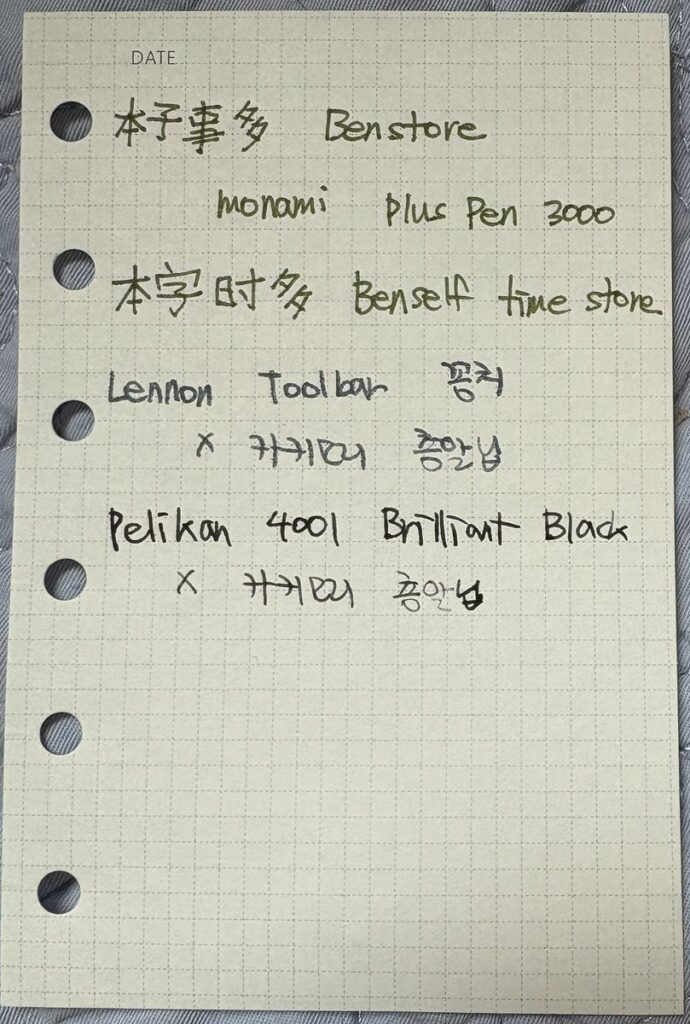 DATE
本子事多 Benstore
monami Plus Pen 3000
本字时多 Benself time store
Lennon Toolbar 꽁치
x 카키모리 총알닙
Pelikan 4001 Brilliant Black
x 카키모리 총알닙